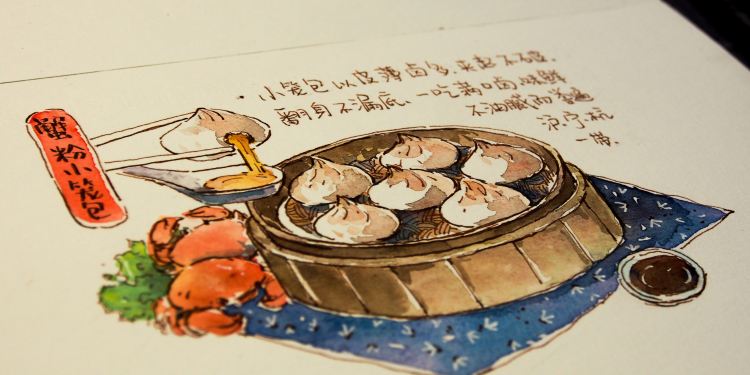 蟹粉小笼包
·小笼包以皮薄卤多.夹起不破.
翻身不漏底.一吃满口卤.味鲜
不油腻而著通
京.宁.杭
一带.